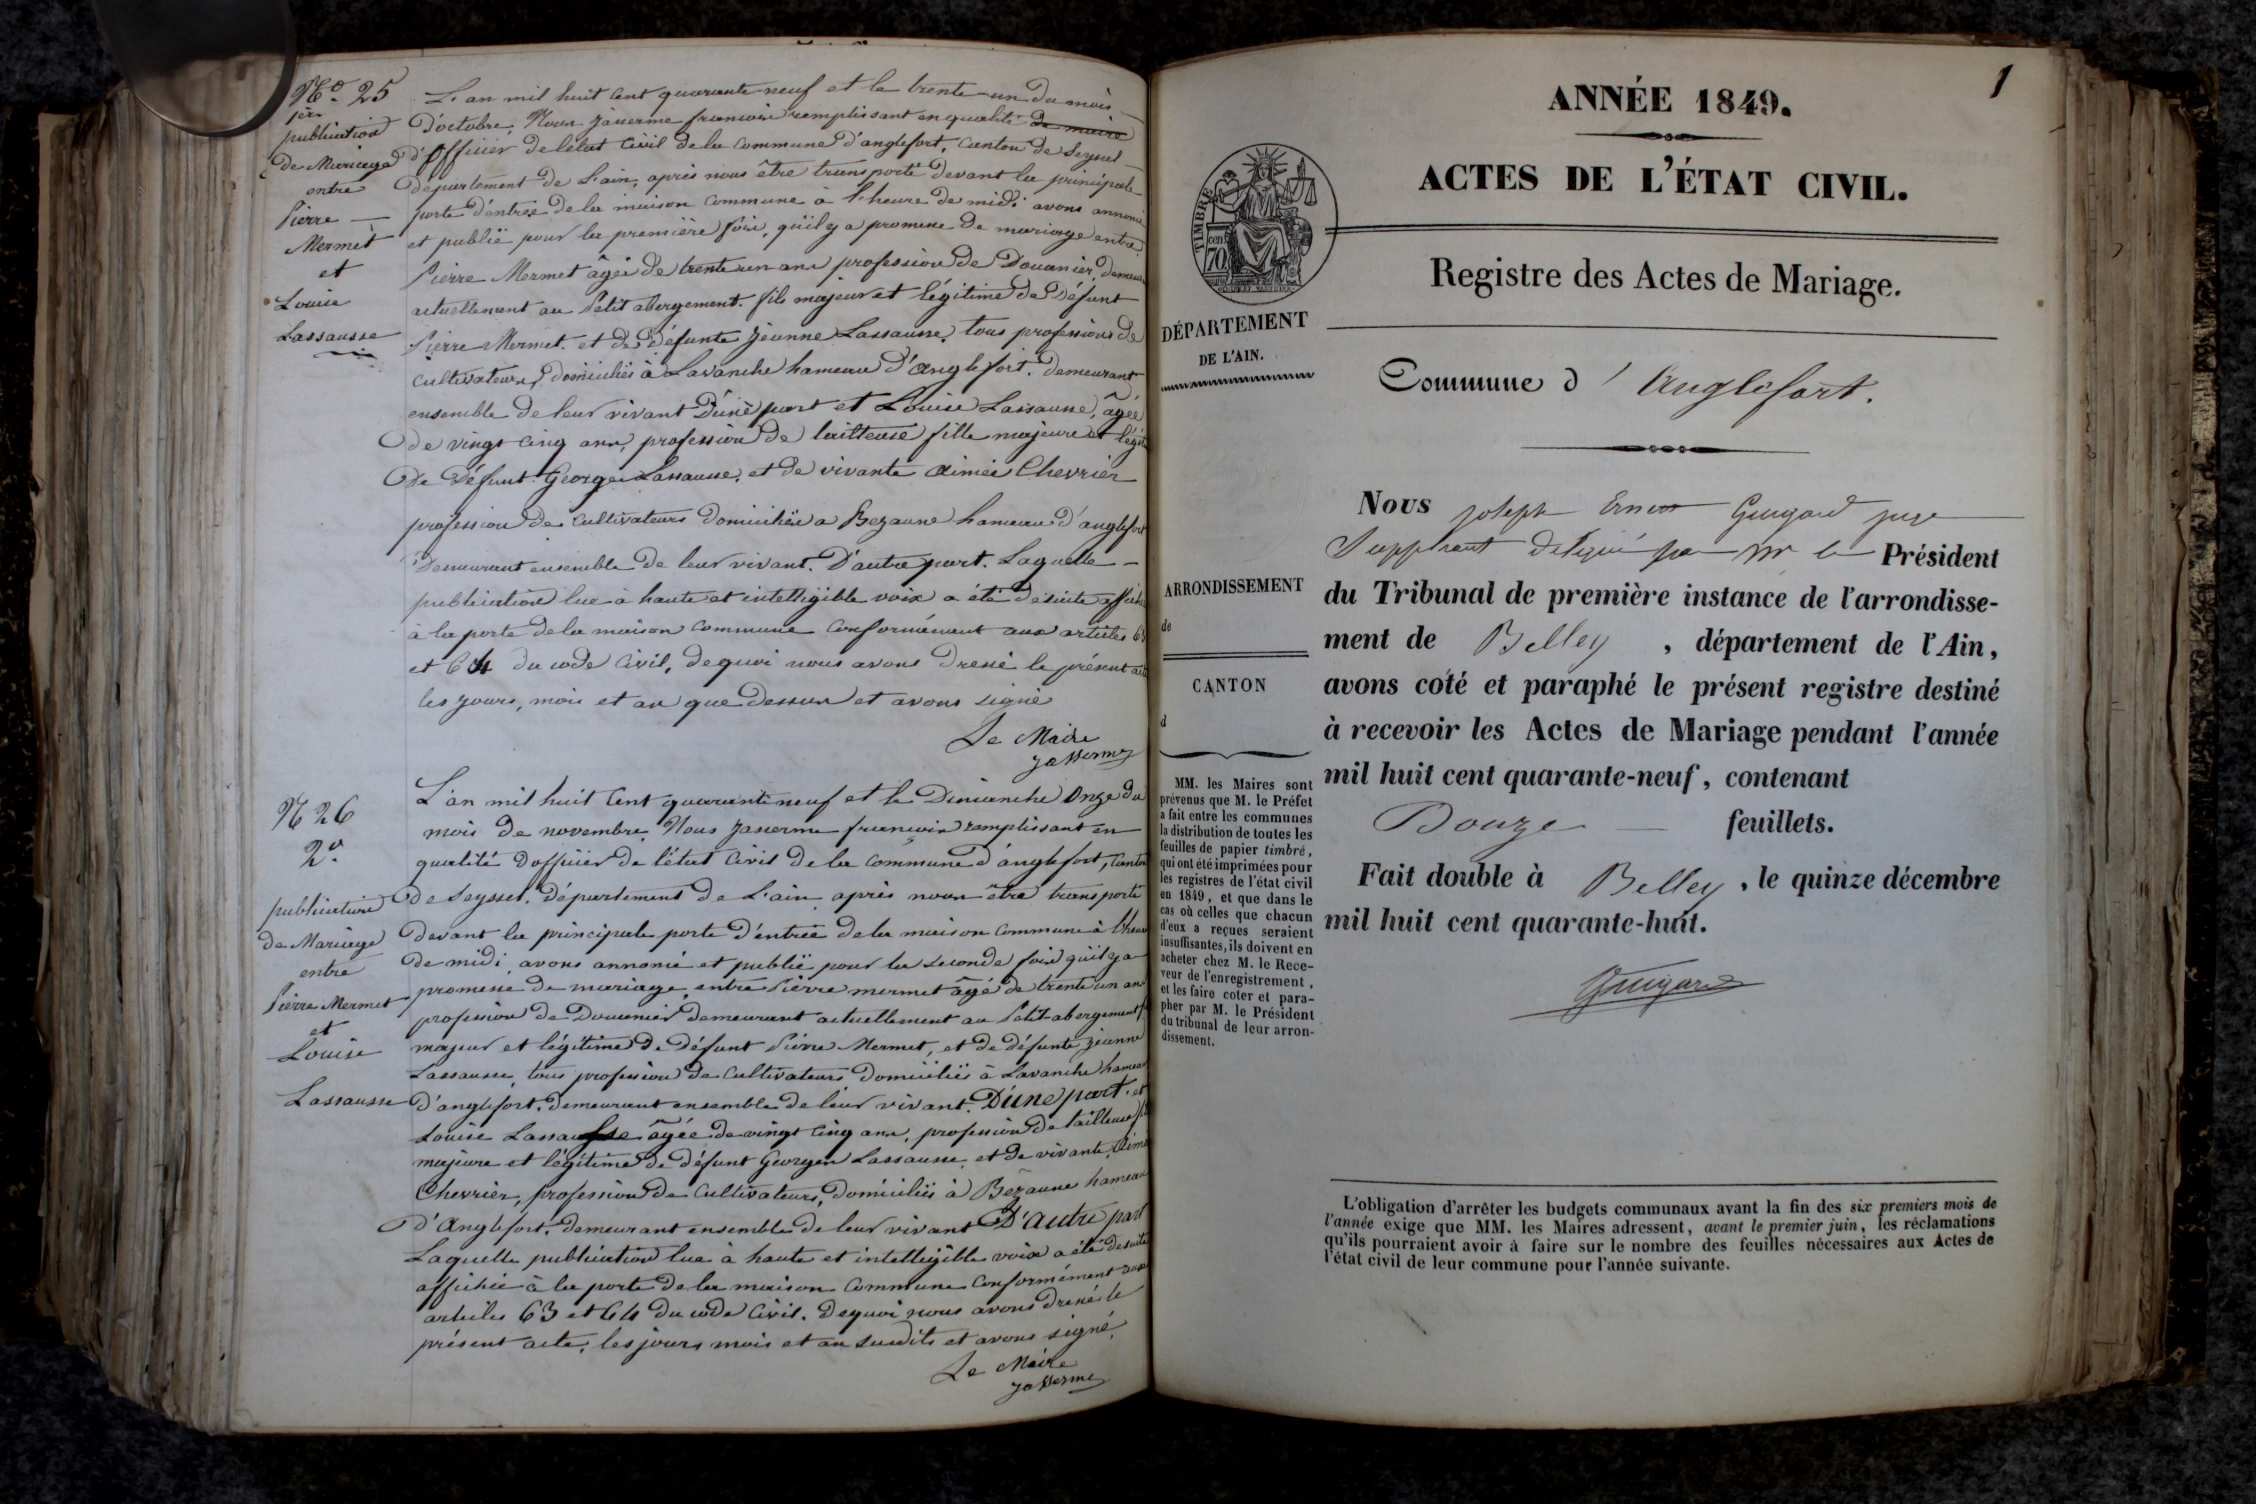 No. 25
1ère
publication
de Mariage
entre
Pierre —
Mermet
et
Louise
Lassausse
L'an mil huit cent quarante neuf et le trente-un du mois
D'octobre, Nous Jasserme françois remplissant en qualité de maire
d'Officier de l'état Civil de la commune d'anglefort, canton de Seyssel
département de L'ain, après nous être transporté devant la principale
porte d'entrée de la maison commune à l'heure de midi avons annoncé
et publié pour la première fois, qu'il y a promesse de mariage entre
Pierre Mermet âgé de trente un ans profession de Douanier,
actuellement au Petit abergement. fils majeur et légitime de Défunt
Pierre Mermet. et de défunte Jeanne Lassausse, tous professions de
cultivateurs, domiciliés à Lavanche hameau d'Anglefort. demeurant
ensemble de leur vivant D'une part et Louise Lassausse, âgée
de vingt cinq ans, profession de tailleuse fille majeure et
De Défunt Georges Lassausse, et de vivante Aimée Chevrier
profession de cultivateurs domiciliés a Bezaune hameau d'anglefort
Demeurant ensemble de leur vivant. D'autre part. Laquelle —
publication lue à haute et intelligible voix a été desuite
à la porte de la maison commune conformément aux articles 63
et 64 du code Civil, dequoi nous avons Dressé le présent
les jours, mois et an que dessus et avons signé
Le Maire
Jasserme
N 26
2e
publication
de Mariage
entre
Pierre Mermet
et
Louise
Lassausse
L'an mil huit Cent quarante neuf et le Dimanche Onze du
mois de novembre Nous Jasserme françois remplissant en
qualité d'officier de l'état Civil de la commune d'anglefort, Canton
de Seyssel. département de L'ain après nous être transporté
devant la principale porte d'entrée de la maison commune à l'heure
de midi, avons annoncé et publié pour la seconde fois qu'il y a
promesse de mariage, entre Pierre mermet âgé de trente un an
profession de Douanier demeurant actuellement au Petit-abergement
majeur et légitime de Défunt Pierre Mermet, et de défunte jeanne
Lassausse, tous profession de Cultivateurs domiciliés à Lavanche hameau
d'anglefort. demeurant ensemble de leur vivant. D'une part. et
Louise Lassausse âgée de vingt cinq ans, profession de tailleuse
majeure et légitime de défunt Georges Lassausse, et de vivante,
Chevrier, profession de Cultivateurs, domiciliés à Bezaune hameau
d'Anglefort. demeurant ensemble de leur vivant D'autre part
Laquelle publication lue à haute et intelligible voix a été desuite
affichée à la porte de la maison commune conformément aux
articles 63 et 64 du code Civil. Dequoi nous avons dressé le
présent acte, les jours mois et an susdits et avons signé.
Le Maire
Jasserme
1
ANNÉE 1849.
ACTES DE L'ÉTAT CIVIL.
TIMBRE
cen
70
Registre des Actes de Mariage.
DÉPARTEMENT
DE L'AIN.
Commune d'Anglefort.
ARRONDISSEMENT
de
CANTON
d
MM. les Maires sont
prévenus que M. le Préfet
a fait entre les communes
la distribution de toutes les
feuilles de papier timbré,
qui ont été imprimées pour
les registres de l'état civil
en 1849, et que dans le
cas où celles que chacun
d'eux a reçues seraient
insuffisantes, ils doivent en
acheter chez M. le Rece-
veur de l'enregistrement,
et les faire coter et para-
pher par M. le Président
du tribunal de leur arron-
dissement.
Nous joseph Ernest juge
Suppléant délégué par Mr le Président
du Tribunal de première instance de l'arrondisse-
ment de Belley, département de l'Ain,
avons coté et paraphé le présent registre destiné
à recevoir les Actes de Mariage pendant l'année
mil huit cent quarante-neuf, contenant
Douze — feuillets.
Fait double à Belley, le quinze décembre
mil huit cent quarante-huit.
L'obligation d'arrêter les budgets communaux avant la fin des six premiers mois de
l'année exige que MM. les Maires adressent, avant le premier juin, les réclamations
qu'ils pourraient avoir à faire sur le nombre des feuilles nécessaires aux Actes de
l'état civil de leur commune pour l'année suivante.